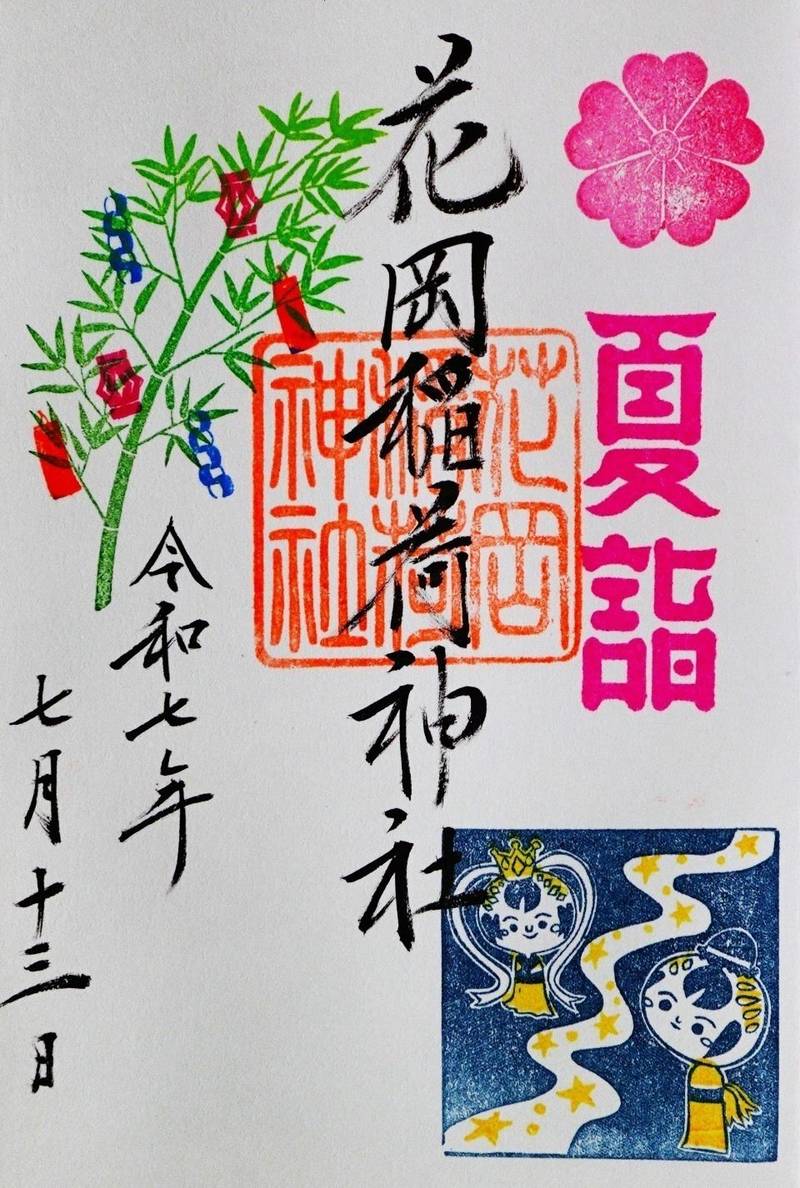 夏詣
花岡稲荷神社
花岡
稲荷
神社
令和七年
七月十三日